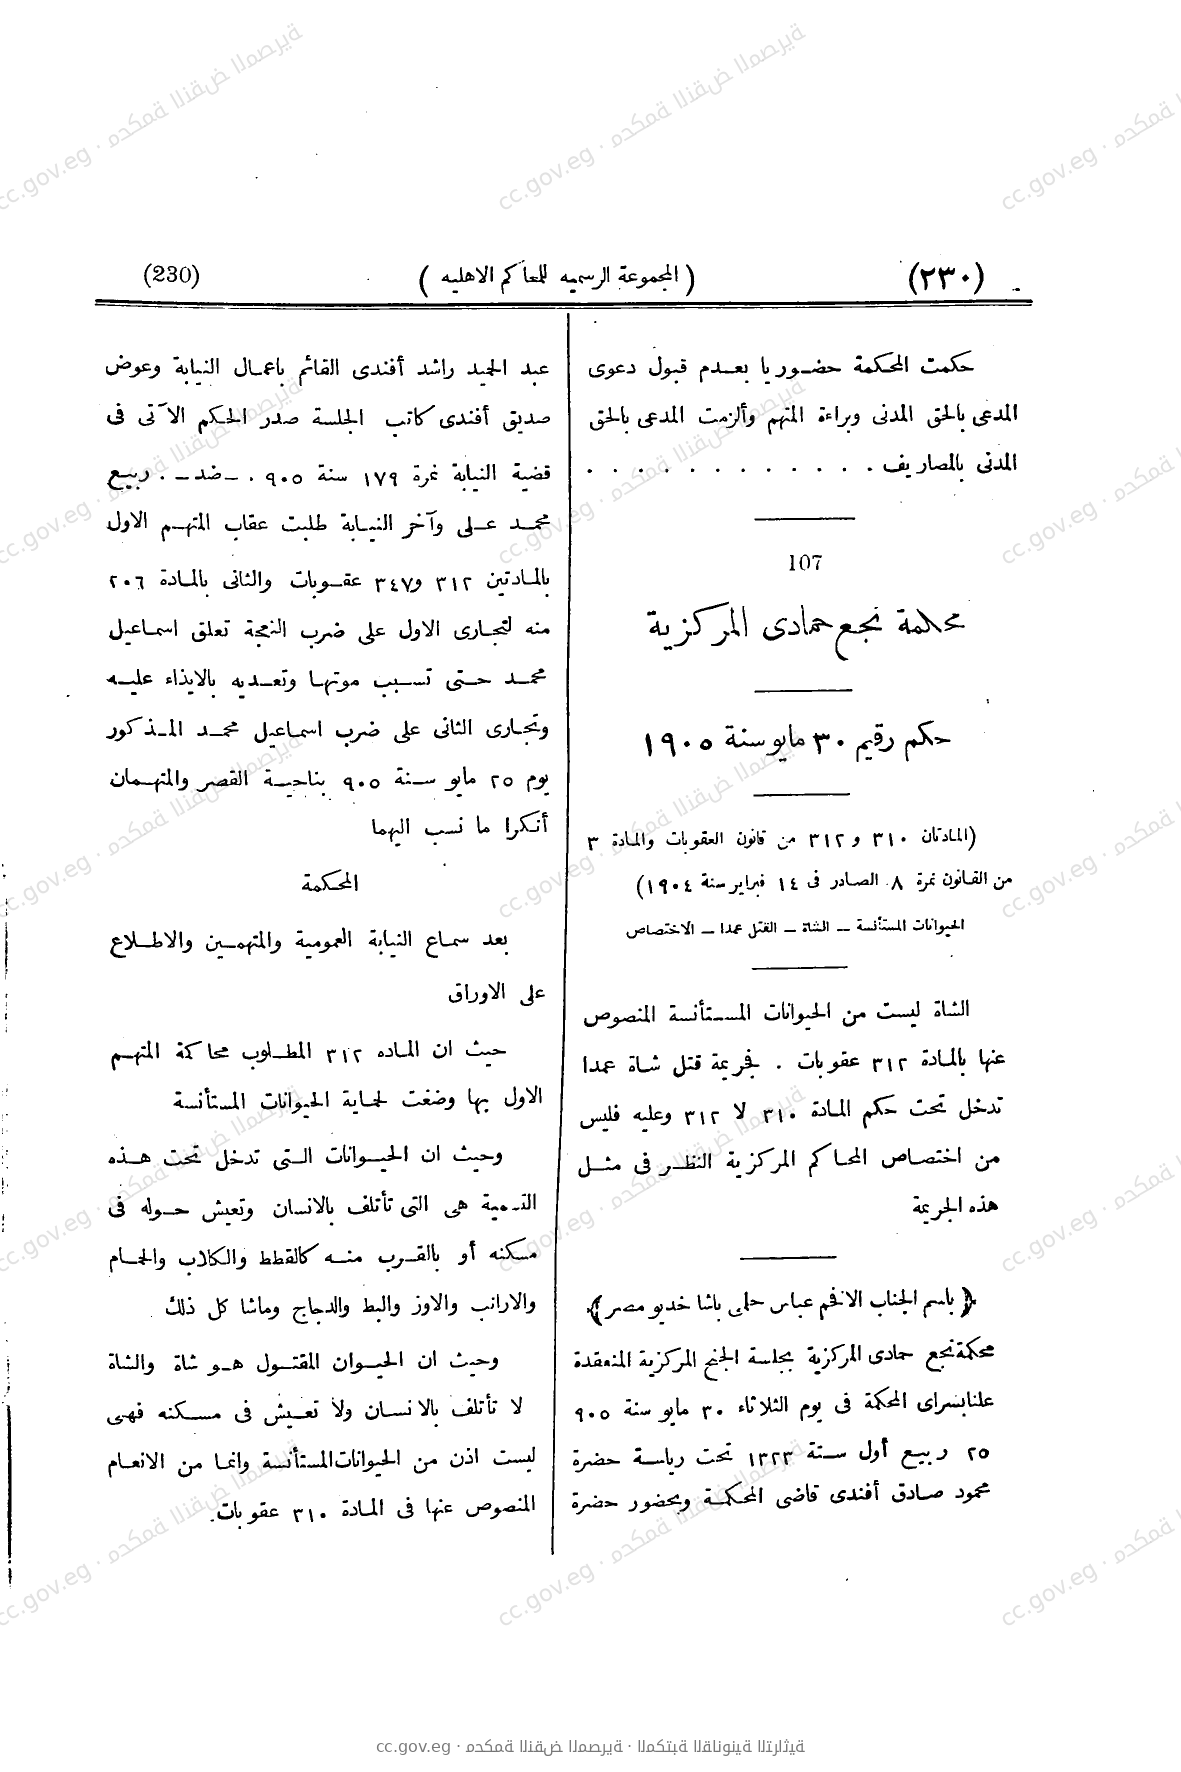 (٢٣٠)
( المجموعة الرسميه للمحاكم الاهليه )
(230)
حكمت المحكمة حضوريا بعدم قبول دعوى
المدعى بالحق المدنى وبراءة المتهم وألزمت المدعى بالحق
المدنى بالمصاريف . . . . . . . . . . . .
107
محكمة نجع حمادى المركزية
حكم رقيم ٣٠ مايو سنة ١٩٠٥
(المادتان ٣١٠ و ٣١٢ من قانون العقوبات والمادة ٣
من القانون نمرة ٨ الصادر فى ١٤ فبراير سنة ١٩٠٤)
الحيوانات المستأنسة – الشاة – القتل عمدا – الاختصاص
الشاة ليست من الحيوانات المستأنسة المنصوص
عنها بالمادة ٣١٢ عقوبات . فجريمة قتل شاة عمدا
تدخل تحت حكم المادة ٣١٠ لا ٣١٢ وعليه فليس
من اختصاص المحاكم المركزية النظر فى مثل
هذه الجريمة
﴿ باسم الجناب الافخم عباس حلمى باشا خديو مصر ﴾
محكمة نجع حمادى المركزية بجلسة الجنح المركزية المنعقدة
علنا بسراى المحكمة فى يوم الثلاثاء ٣٠ مايو سنة ٩٠٥
٢٥ ربيع أول سنة ١٣٢٣ تحت رياسة حضرة
محمود صادق أفندى قاضى المحكمة وبحضور حضرة
عبد الحميد راشد أفندى القائم باعمال النيابة وعوض
صديق أفندى كاتب الجلسة صدر الحكم الآتى فى
قضية النيابة نمرة ١٧٩ سنة ٩٠٥ . – ضد – . ربيع
محمد على وآخر النيابة طلبت عقاب المتهم الاول
بالمادتين ٣١٢ و٣٤٧ عقوبات والثانى بالمادة ٢٠٦
منه لتجارى الاول على ضرب النعجة تعلق اسماعيل
محمد حتى تسبب موتها وتعديه بالايذاء عليه
وتجارى الثانى على ضرب اسماعيل محمد المذكور
يوم ٢٥ مايو سنة ٩٠٥ بناحية القصر والمتهمان
أنكرا ما نسب اليهما
المحكمة
بعد سماع النيابة العمومية والمتهمين والاطلاع
على الاوراق
حيث ان الماده ٣١٢ المطلوب محاكمة المتهم
الاول بها وضعت لحماية الحيوانات المستأنسة
وحيث ان الحيوانات التى تدخل تحت هذه
التسمية هى التى تأتلف بالانسان وتعيش حوله فى
مسكنه أو بالقرب منه كالقطط والكلاب والحمام
والارانب والاوز والبط والدجاج وماشا كل ذلك
وحيث ان الحيوان المقتول هو شاة والشاة
لا تأتلف بالانسان ولا تعيش فى مسكنه فهى
ليست اذن من الحيوانات المستأنسة وانما من الانعام
المنصوص عنها فى المادة ٣١٠ عقوبات.
cc.gov.eg · محكمة النقض المصرية · المكتبة القانونية التراثية